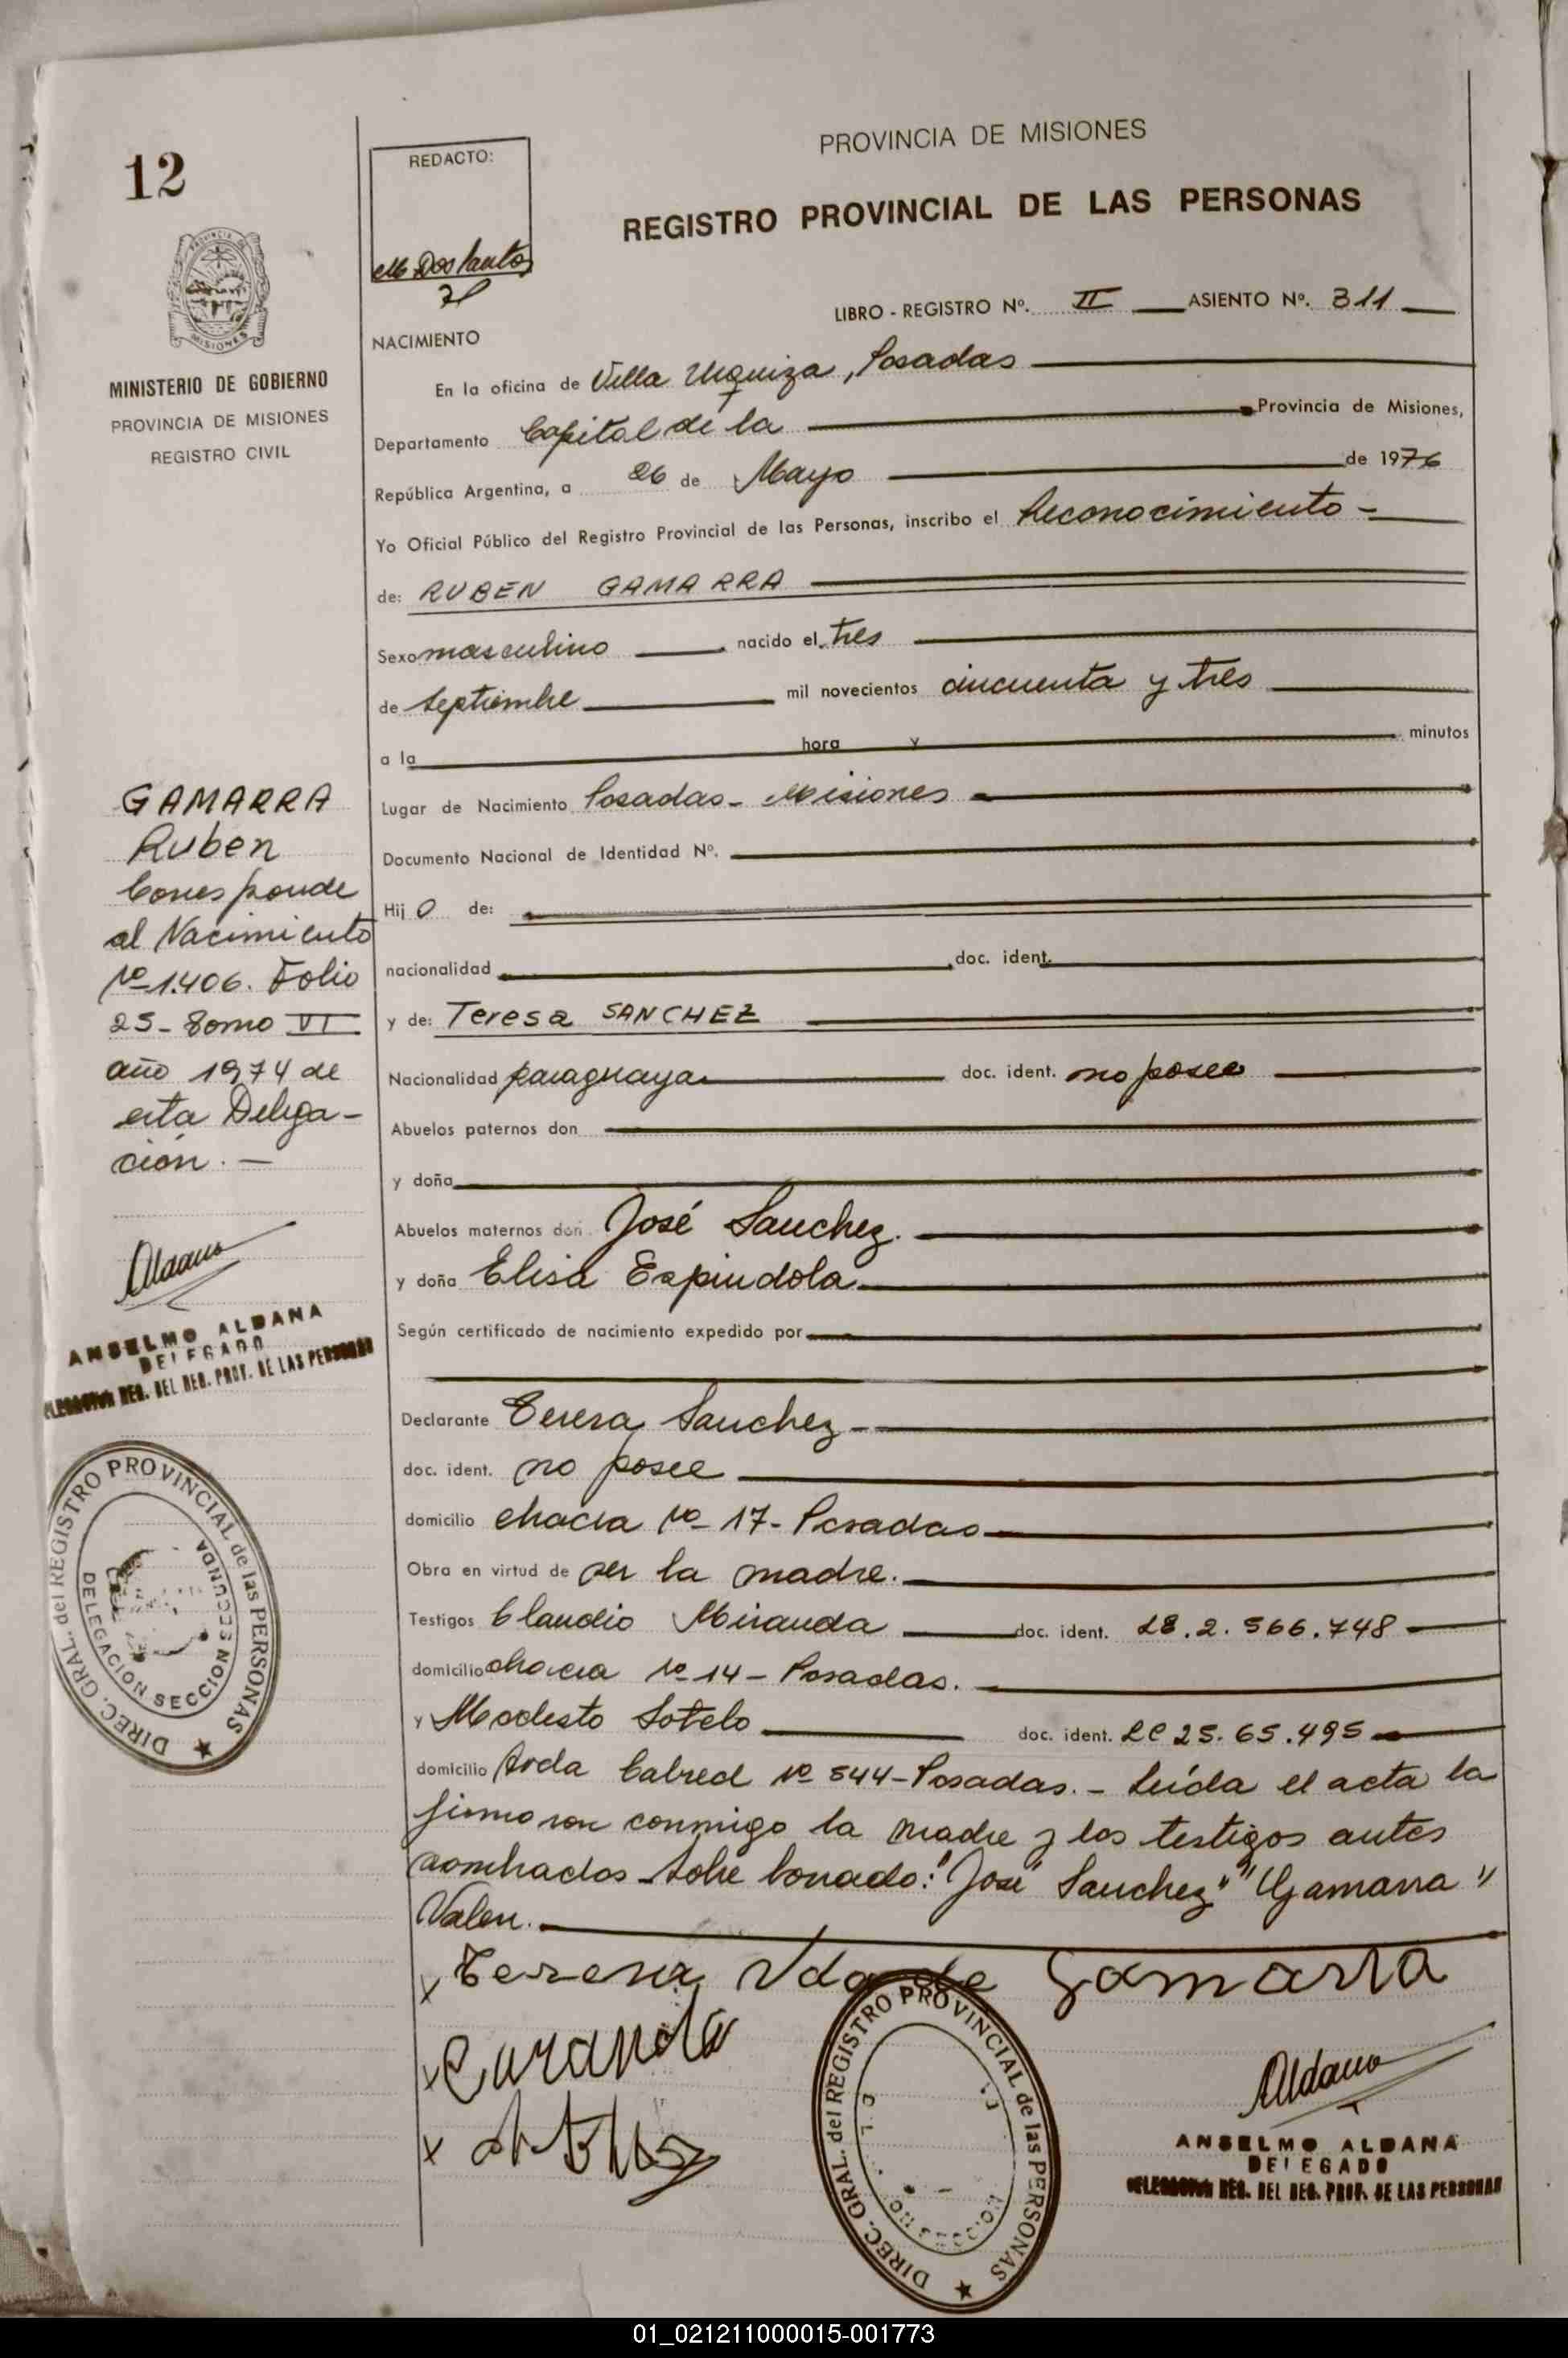 12
PROVINCIA DE
MISIONES
MINISTERIO DE GOBIERNO
PROVINCIA DE MISIONES
REGISTRO CIVIL
REDACTO:
M Dos Santos
PROVINCIA DE MISIONES
REGISTRO PROVINCIAL DE LAS PERSONAS
LIBRO - REGISTRO Nº. II ASIENTO Nº. 311
NACIMIENTO
En la oficina de Villa Urquiza, Posadas
Departamento Capital de la Provincia de Misiones,
República Argentina, a 26 de Mayo de 1976
Yo Oficial Público del Registro Provincial de las Personas, inscribo el Reconocimiento -
de: RUBEN GAMARRA
Sexo masculino nacido el tres
de septiembre mil novecientos cincuenta y tres
a la hora y minutos
Lugar de Nacimiento Posadas - Misiones
Documento Nacional de Identidad Nº.
Hijo de:
nacionalidad doc. ident.
y de: Teresa SANCHEZ
Nacionalidad paraguaya doc. ident. no posee
Abuelos paternos don
y doña
Abuelos maternos don José Sanchez.
y doña Elisa Espindola
Según certificado de nacimiento expedido por
Declarante Teresa Sanchez -
doc. ident. no posee
domicilio chacra Nº 17 - Posadas
Obra en virtud de ser la madre.
Testigos Claudio Miranda doc. ident. LE.2.566.748
domicilio chacra Nº 14 - Posadas.
y Modesto Sotelo doc. ident. LE 25.65.495
domicilio Avda Cabred Nº 544 - Posadas. - Leída el acta la
firmaron conmigo la madre y los testigos antes
nombrados - Sobre borrado: "José Sanchez" "Gamarra"
Valen.
x Teresa Vda de Gamarra
x
x
GAMARRA
Ruben
Corresponde
al Nacimiento
Nº 1.406. Folio
25 - Tomo VI
año 1974 de
esta Delega-
ción. -
Aldana
ANSELMO ALDANA
DELEGADO
DELEGACION REG. DEL REG. PROV. DE LAS PERSONAS
DIREC. GRAL. del REGISTRO PROVINCIAL de las PERSONAS
DELEGACION SECCION SEGUNDA
DIREC. GRAL. del REGISTRO PROVINCIAL de las PERSONAS
Aldana
ANSELMO ALDANA
DELEGADO
DELEGACION REG. DEL REG. PROV. DE LAS PERSONAS
01_021211000015-001773